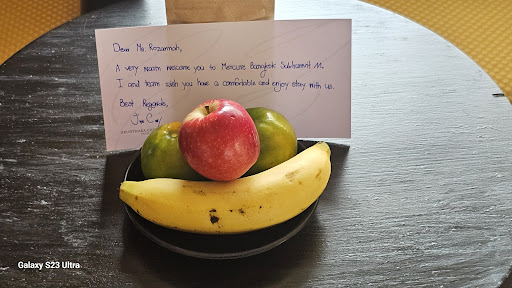 Dear Ms. Rozannah,
A very warm welcome you to Mercure Bangkok Sukhumvit 11.
I and team wish you have a comfortable and enjoy stay with us.
Best Regards,
Galaxy S23 Ultra